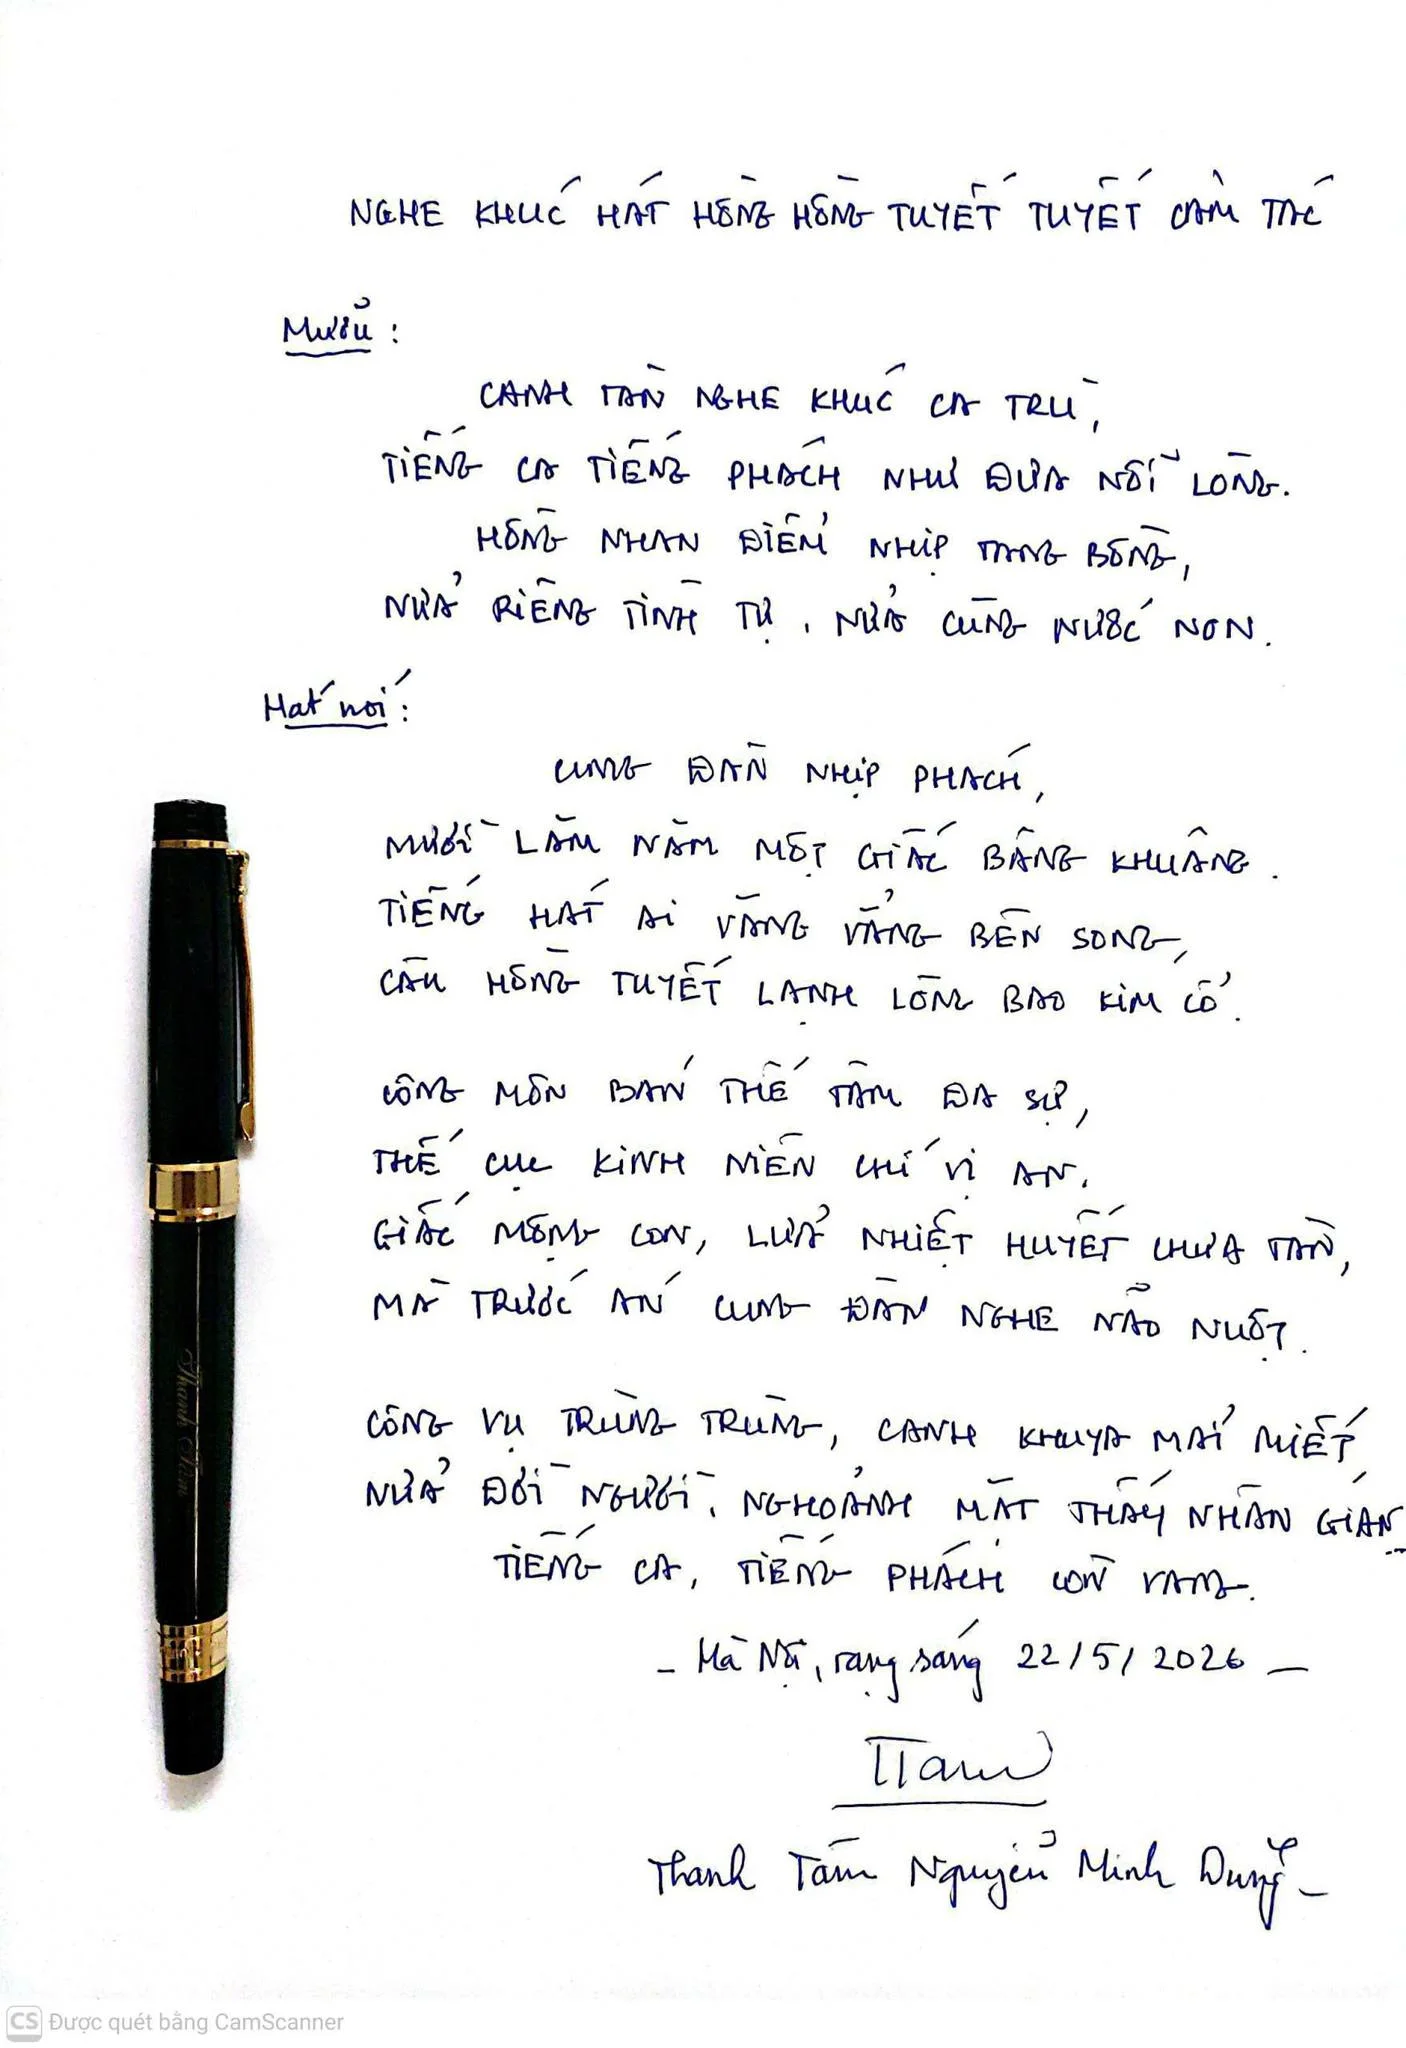 NGHE KHÚC HÁT HỒNG HỒNG TUYẾT TUYẾT CẢM TÁC
Mưỡu :
CANH TÀN NGHE KHÚC CA TRÙ,
TIẾNG CA TIẾNG PHÁCH NHƯ ĐƯA NỖI LÒNG.
HỒNG NHAN ĐIỂM NHỊP TANG BỒNG,
NỬA RIÊNG TÌNH TỰ, NỬA CÙNG NƯỚC NON.
Hát nói :
CUNG ĐÀN NHỊP PHÁCH,
MƯỜI LĂM NĂM MỘT GIẤC BÂNG KHUÂNG.
TIẾNG HÁT AI VĂNG VẲNG BÊN SONG,
CÂU HỒNG TUYẾT LẠNH LÒNG BAO KIM CỔ.
CÔNG MÔN BÁN THẾ TÂM ĐA SỰ,
THẾ CỤC KINH NIÊN CHÍ VỊ AN.
GIẤC MỘNG CON, LỬA NHIỆT HUYẾT CHƯA TÀN,
MÀ TRƯỚC ÁN CUNG ĐÀN NGHE NÃO NUỘT.
CÔNG VỤ TRÙNG TRÙNG, CANH KHUYA MẢI MIẾT
NỬA ĐỜI NGƯỜI, NGHOẢNH MẶT THẤY NHÂN GIAN
TIẾNG CA, TIẾNG PHÁCH CÒN VANG.
- Hà Nội, rạng sáng 22/5/2026 -
TTam
Thanh Tâm Nguyễn Minh Dũng -
Thanh Tâm
CS Được quét bằng CamScanner